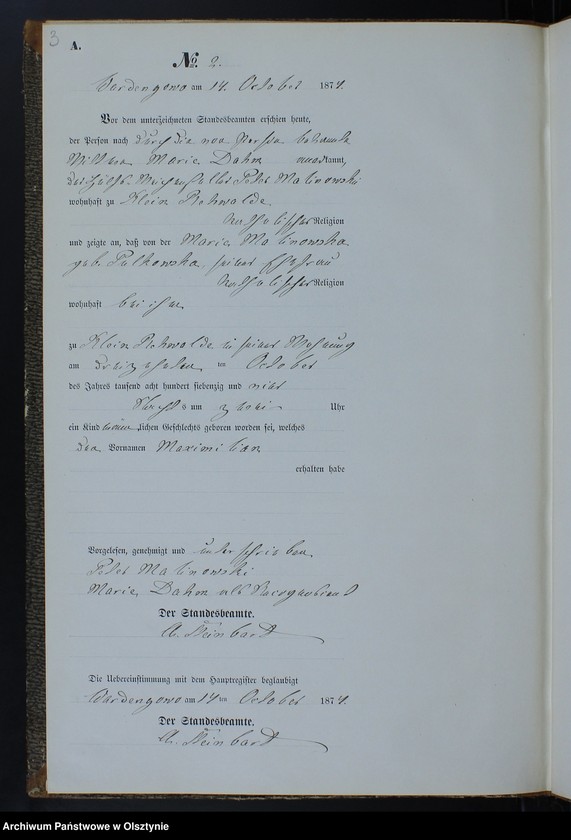 3
A.
№ 2.
Wardengowo am 14. October 1874.
Vor dem unterzeichneten Standesbeamten erschien heute,
der Person nach durch die von Person bekannte
Wittwe Marie Dahm anerkannt,
Peter Malinowski
wohnhaft zu Klein Rehwalde
katholischer Religion
und zeigte an, daß von der Marie Malinowska
geb. Pulkowska, seiner Ehefrau
katholischer Religion
wohnhaft bei ihm
zu Klein Rehwalde in seiner Wohnung
am dreizehnten ten October
des Jahres tausend acht hundert siebenzig und vier
Nachts um zwei Uhr
ein Kind männlichen Geschlechts geboren worden sei, welches
den Vornamen Maximilian
erhalten habe
Vorgelesen, genehmigt und unterschrieben
Peter Malinowski
Marie Dahm als
Der Standesbeamte.
A. Steinbart
Die Uebereinstimmung mit dem Hauptregister beglaubigt
Wardengowo am 14 ten October 1874.
Der Standesbeamte.
A. Steinbart
Archiwum Państwowe w Olsztynie